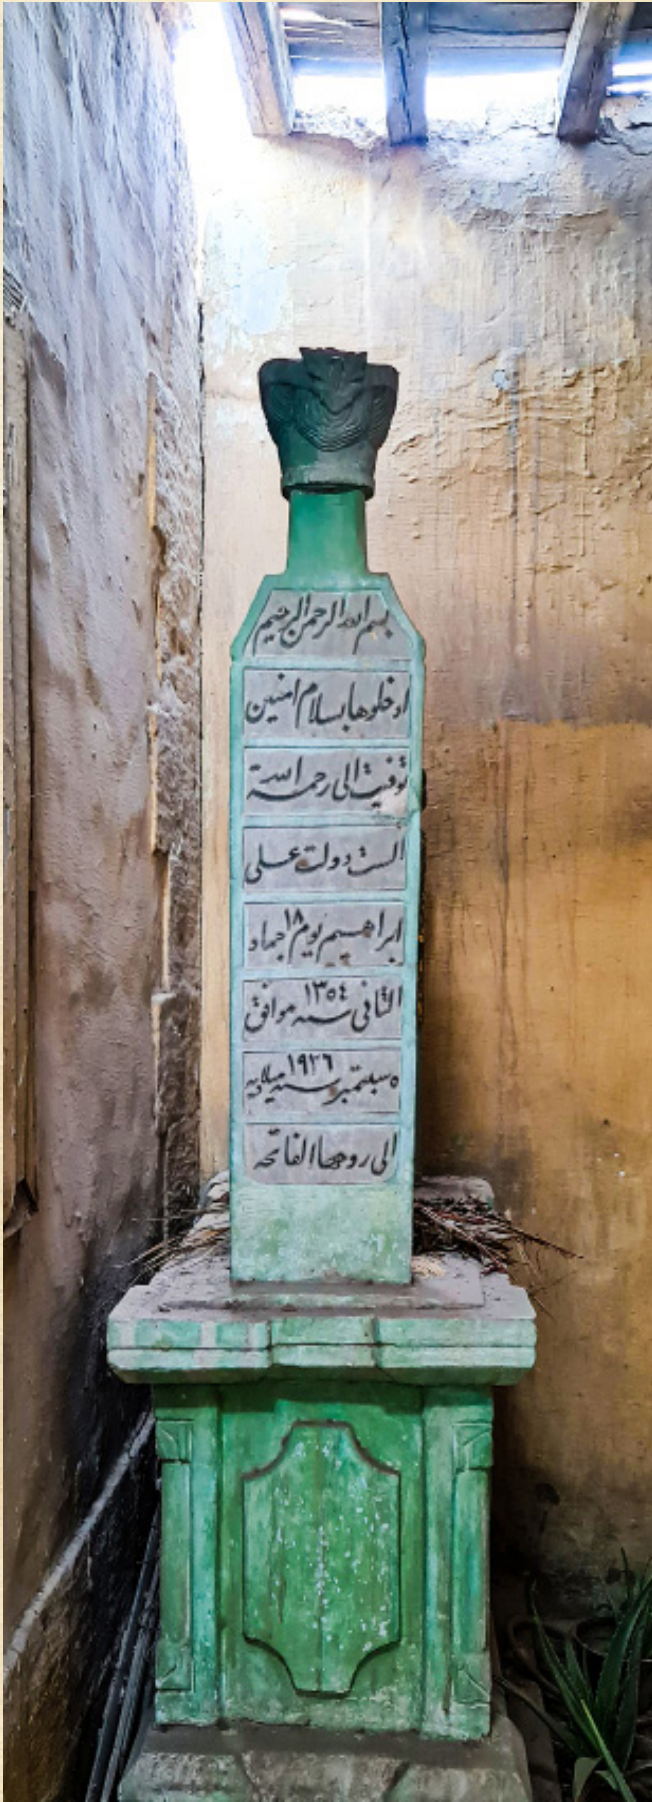 بسم الله الرحمن الرحيم
ادخلوها بسلام امنين
توفيت الى رحمة الله
الست دولت على
ابراهيم يوم ١٨ جماد
الثانى سنه ١٣٥٤ موافق
٥ سبتمبر سنه ١٩٣٦ ميلاديه
الى روحها الفاتحه